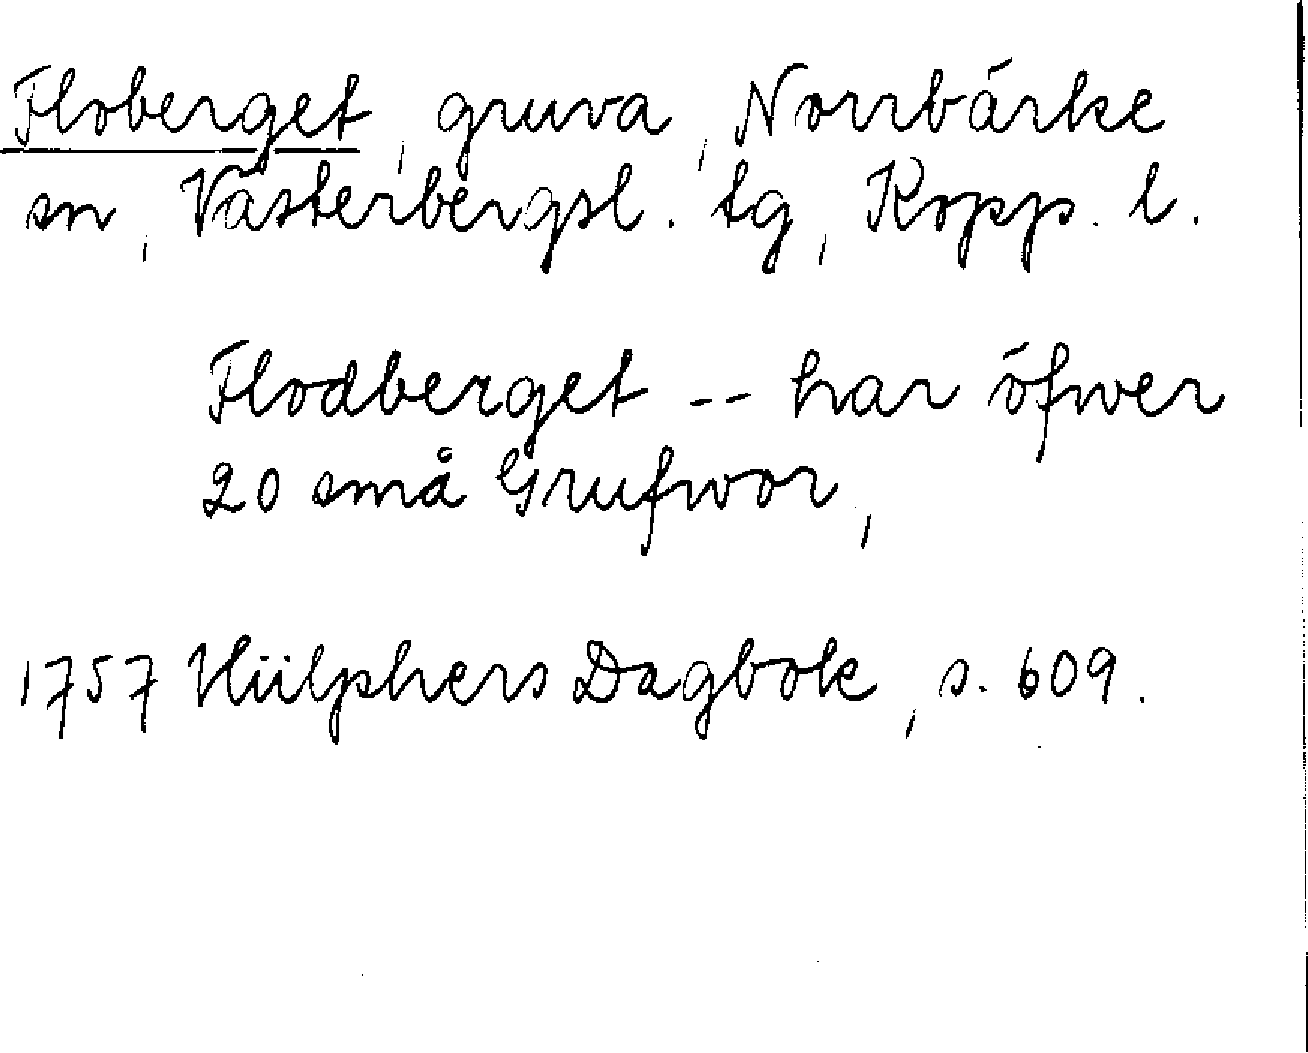 Floberget, gruva, Norrbärke
sn, Västerbergsl. tg, Kopp. l.
Flodberget -- har öfwer
20 små Grufwor,
1757 Hülphers Dagbok, s. 609.